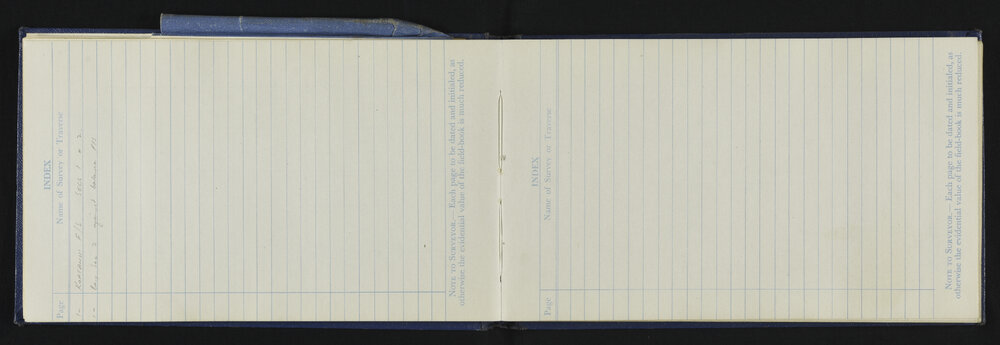 INDEX
Page Name of Survey or Traverse
1- Secs 1 & 2
1- Sec 2
NOTE TO SURVEYOR.— Each page to be dated and initialed, as
otherwise the evidential value of the field-book is much reduced.
INDEX
Page Name of Survey or Traverse
NOTE TO SURVEYOR.— Each page to be dated and initialed, as
otherwise the evidential value of the field-book is much reduced.